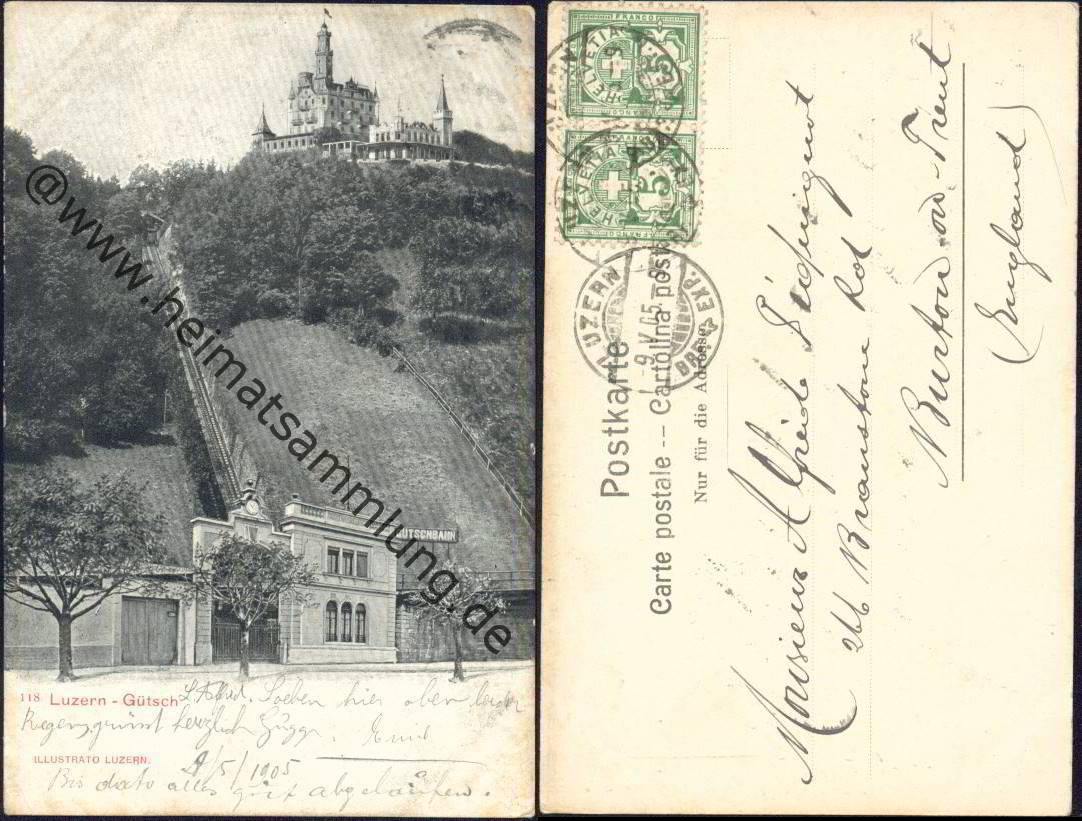 @www.heimatsammlung.de
GÜTSCHBAHN
118 Luzern - Gütsch L. Alfred. Soeben hier oben leider
Regen, grüsst herzlich Emil
ILLUSTRATO LUZERN.
9/5/1905
Bis dato alles gut abgelaufen.
FRANCO
HELVETIA
5
FRANCO
FRANCO
HELVETIA
5
FRANCO
LUZERN
-9.V.05.
BRF. EXP.
Postkarte
Carte postale -- Cartolina post
Nur für die Adresse
Monsieur Alfride
266 Branstone Rd
Burton-on-Trent
(England)